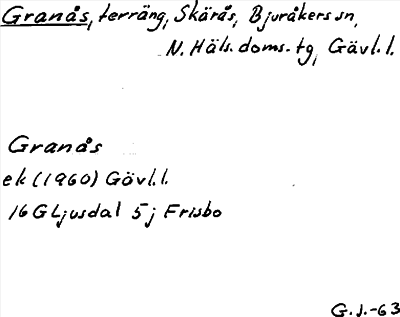 Granås, terräng, Skärås, Bjuråkers sn,
N. Häls. doms. tg, Gävl. l.
Granås
ek (1960) Gövl. l.
16 G Ljusdal 5 j Frisbo
G. J. -63